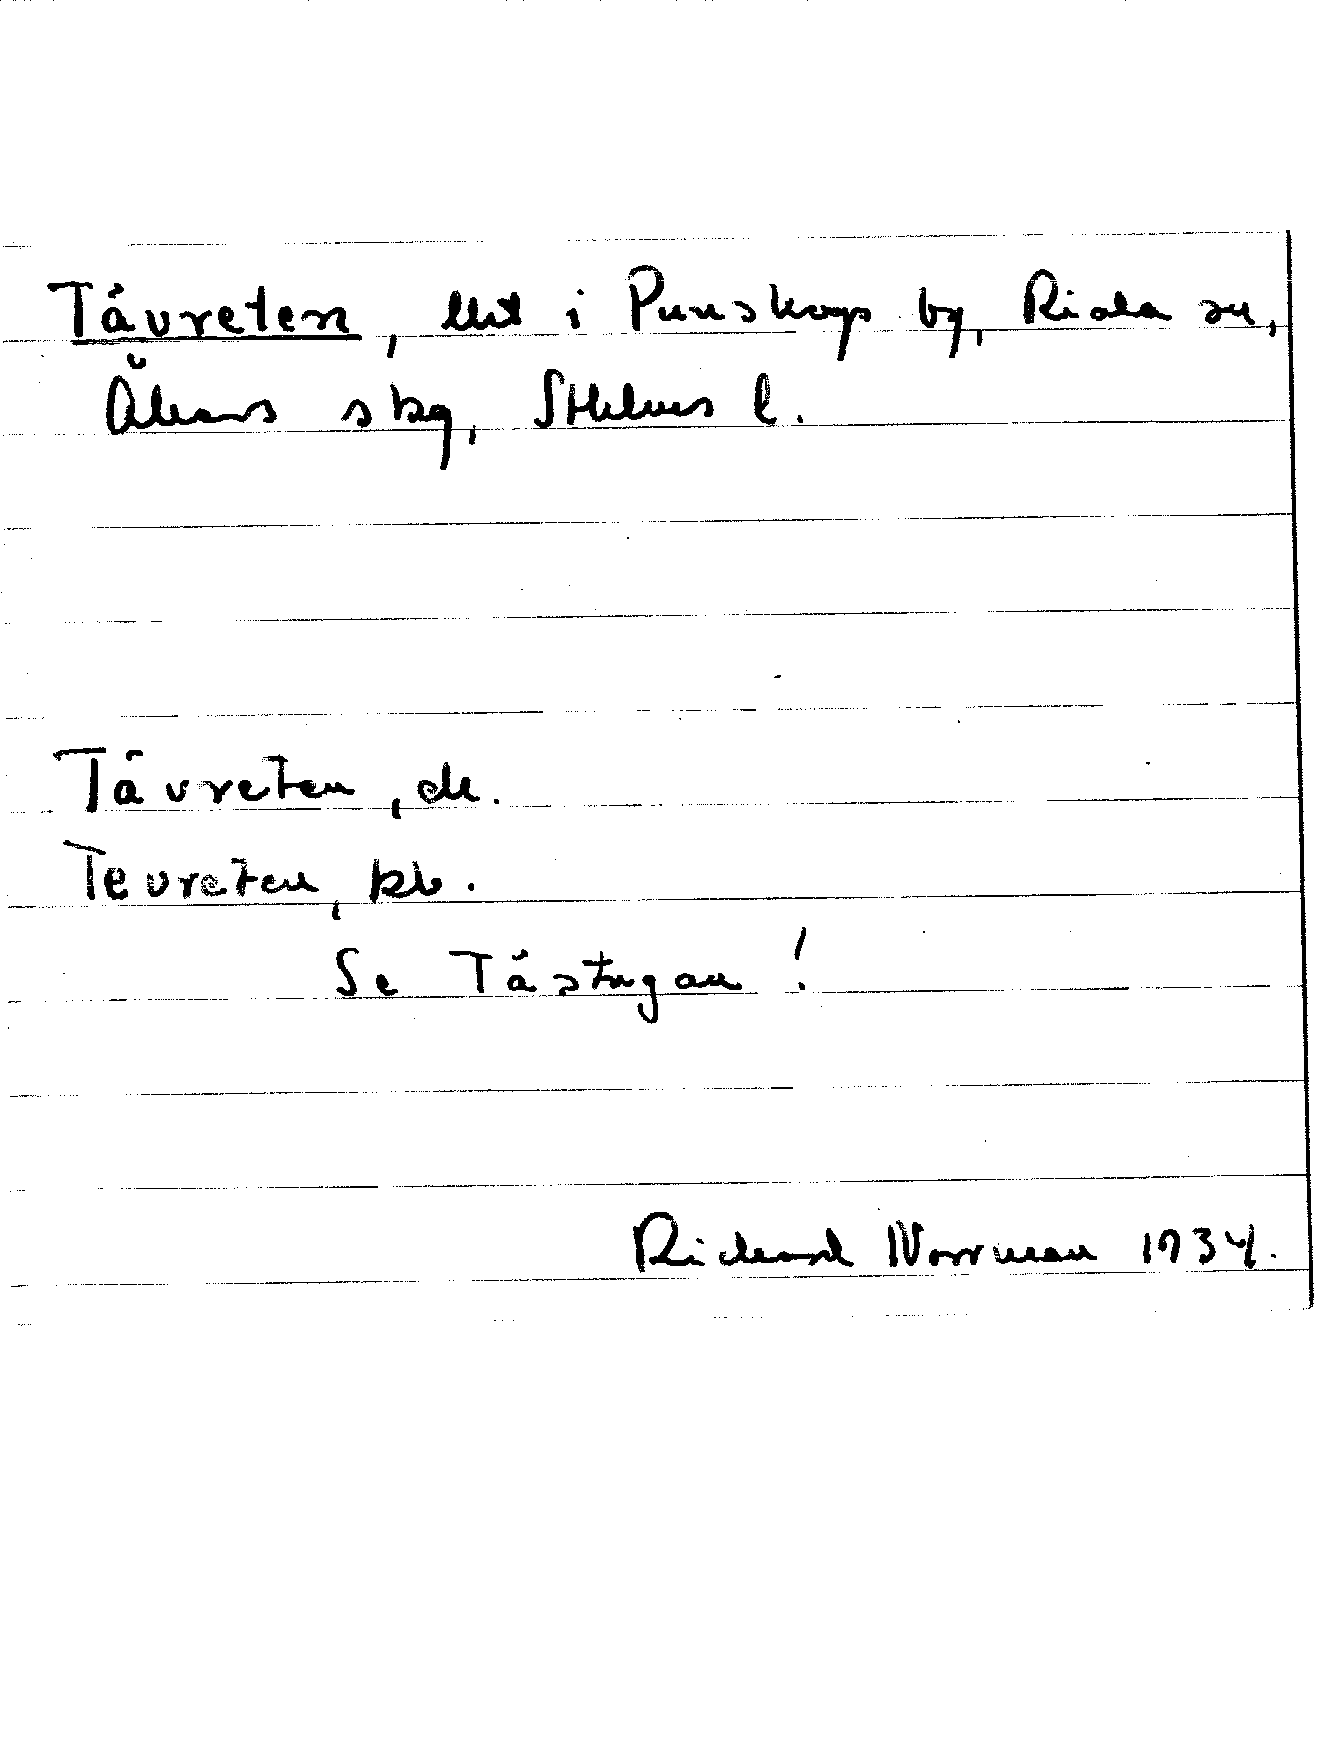 Tåvreten, lht i Prnskogs by, Riala sn,
Åkers skg, Sthlms l.
Tåvreten, dk.
Tevreten, kb.
Se Tåstugan!
Richard Norrman 1934.